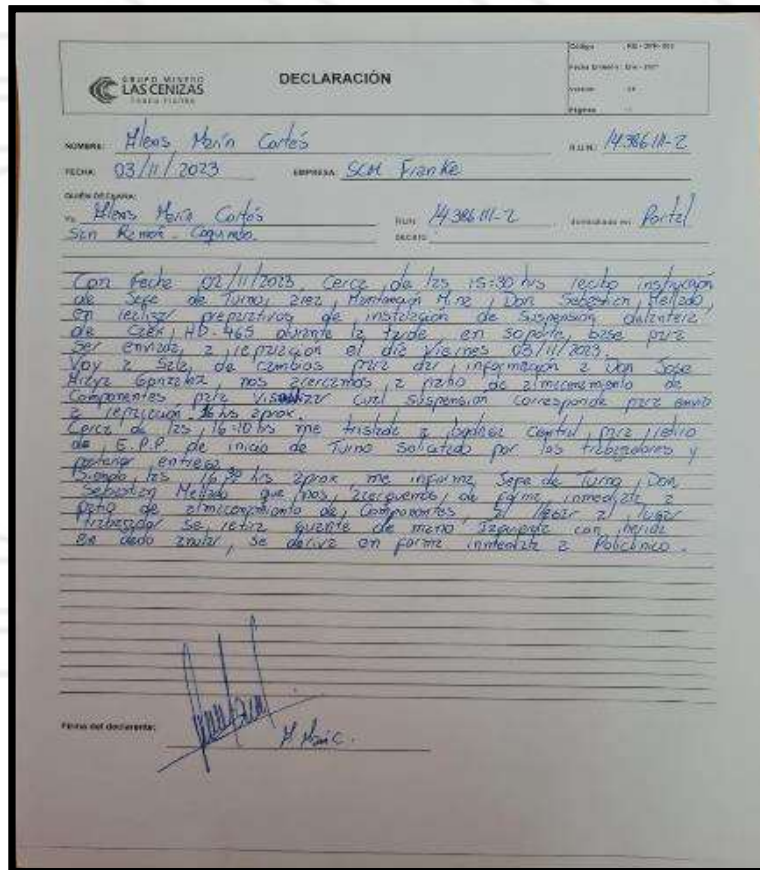 GRUPO MINERO
LAS CENIZAS
FAENA FRANKE
DECLARACIÓN
Código
Fecha
Versión
Página
NOMBRE: Alexis Marín Cortés R.U.N.: 14.386.111-2
FECHA: 03/11/2023 EMPRESA: SCM Franke
QUIÉN DECLARA:
Yo Alexis Marín Cortés RUN: 14.386.111-2, domiciliado en Portal
San Ramón - Coquimbo.
Con Fecha 02/11/2023, Cerca de las 15:30 hrs recibo instrucción
de Jefe de Turno, area Mantención Mina, Don Sebastian Mellado,
en realizar preparativos de instalación de Suspensión delantera
de Caex HD-465 durante la tarde en soporte base para
Ser enviada a reparación el día Viernes 03/11/2023.
Voy a Sala de cambios para dar información a Don Jose
Gonzalez, nos acercamos a patio de almacenamiento de
Componentes para Visualizar cual Suspensión corresponde para envio
a reparación 16 hrs aprox.
Cerca de las 16:10 hrs me traslado a bodega Central para retiro
de E.P.P. de inicio de Turno Solicitado por los trabajadores y
posterior entrega.
Siendo las 16:30 hrs aprox, me informa Jefe de Turno, Don
Sebastian Mellado que nos acerquemos de forma inmediata a
patio de almacenamiento de Componentes, al llegar al lugar
trabajador se retira guante de mano Izquierda con herida
en dedo anular, se deriva en forma inmediata a Policlínico.
Firma del declarante:
A Marín C.